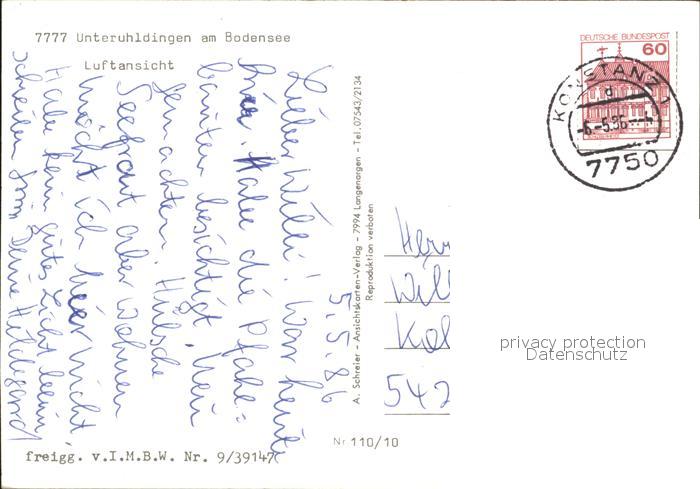 7777 Unteruhldingen am Bodensee
Luftansicht
DEUTSCHE BUNDESPOST
60
KONSTANZ 1
d
-6.-5.86--
7750
5.5.86
Lieber Willi! War heute
hier. Habe die Pfahl=
bauten besichtigt.
Hübsche
Seefront aber wohnen
möcht ich hier nicht
Habe kein gutes Licht beim
schreiben Deine Hildegard
A. Schreier - Ansichtskarten-Verlag - 7994 Langenargen - Tel. 07543/2134
Reproduktion verboten
Herr
Will
Kob
542
privacy protection
Datenschutz
Nr 110/10
freigg. v.I.M.B.W. Nr. 9/39147